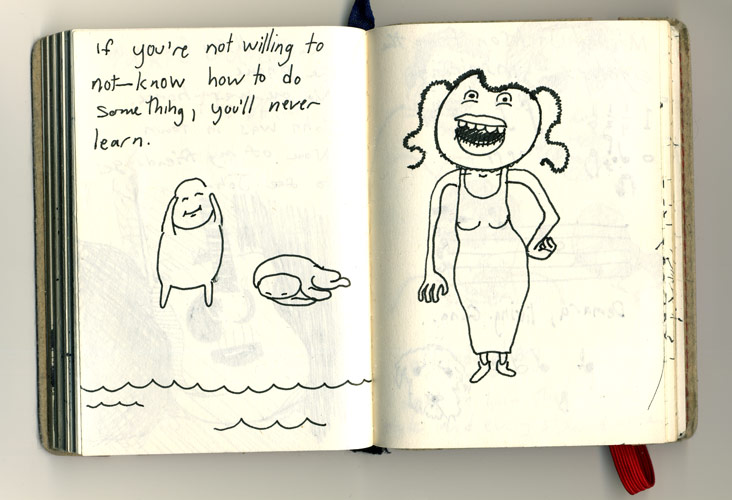 If you're not willing to
not-know how to do
something, you'll never
learn.